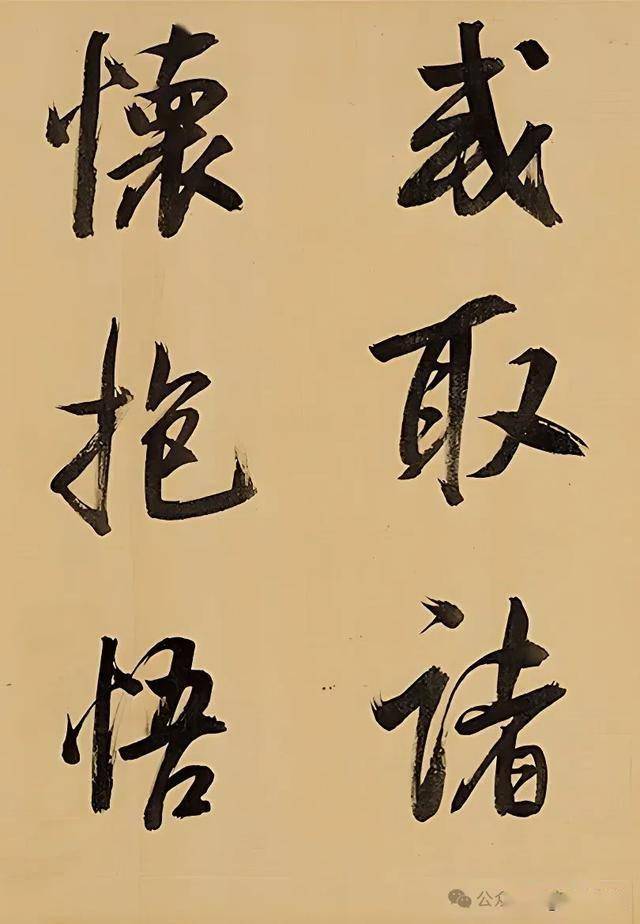 或取諸
懷抱悟
公众